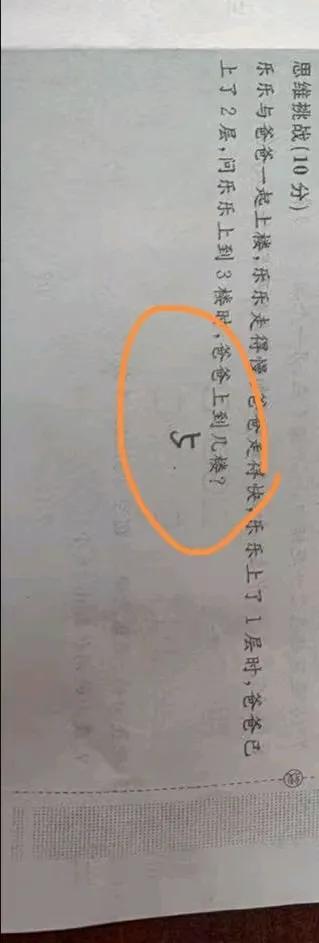 思维挑战(10分)
乐乐与爸爸一起上楼,乐乐走得慢,爸爸走得快,乐乐上了1层时,爸爸已
上了2层,问乐乐上到3楼时,爸爸上到几楼?
5